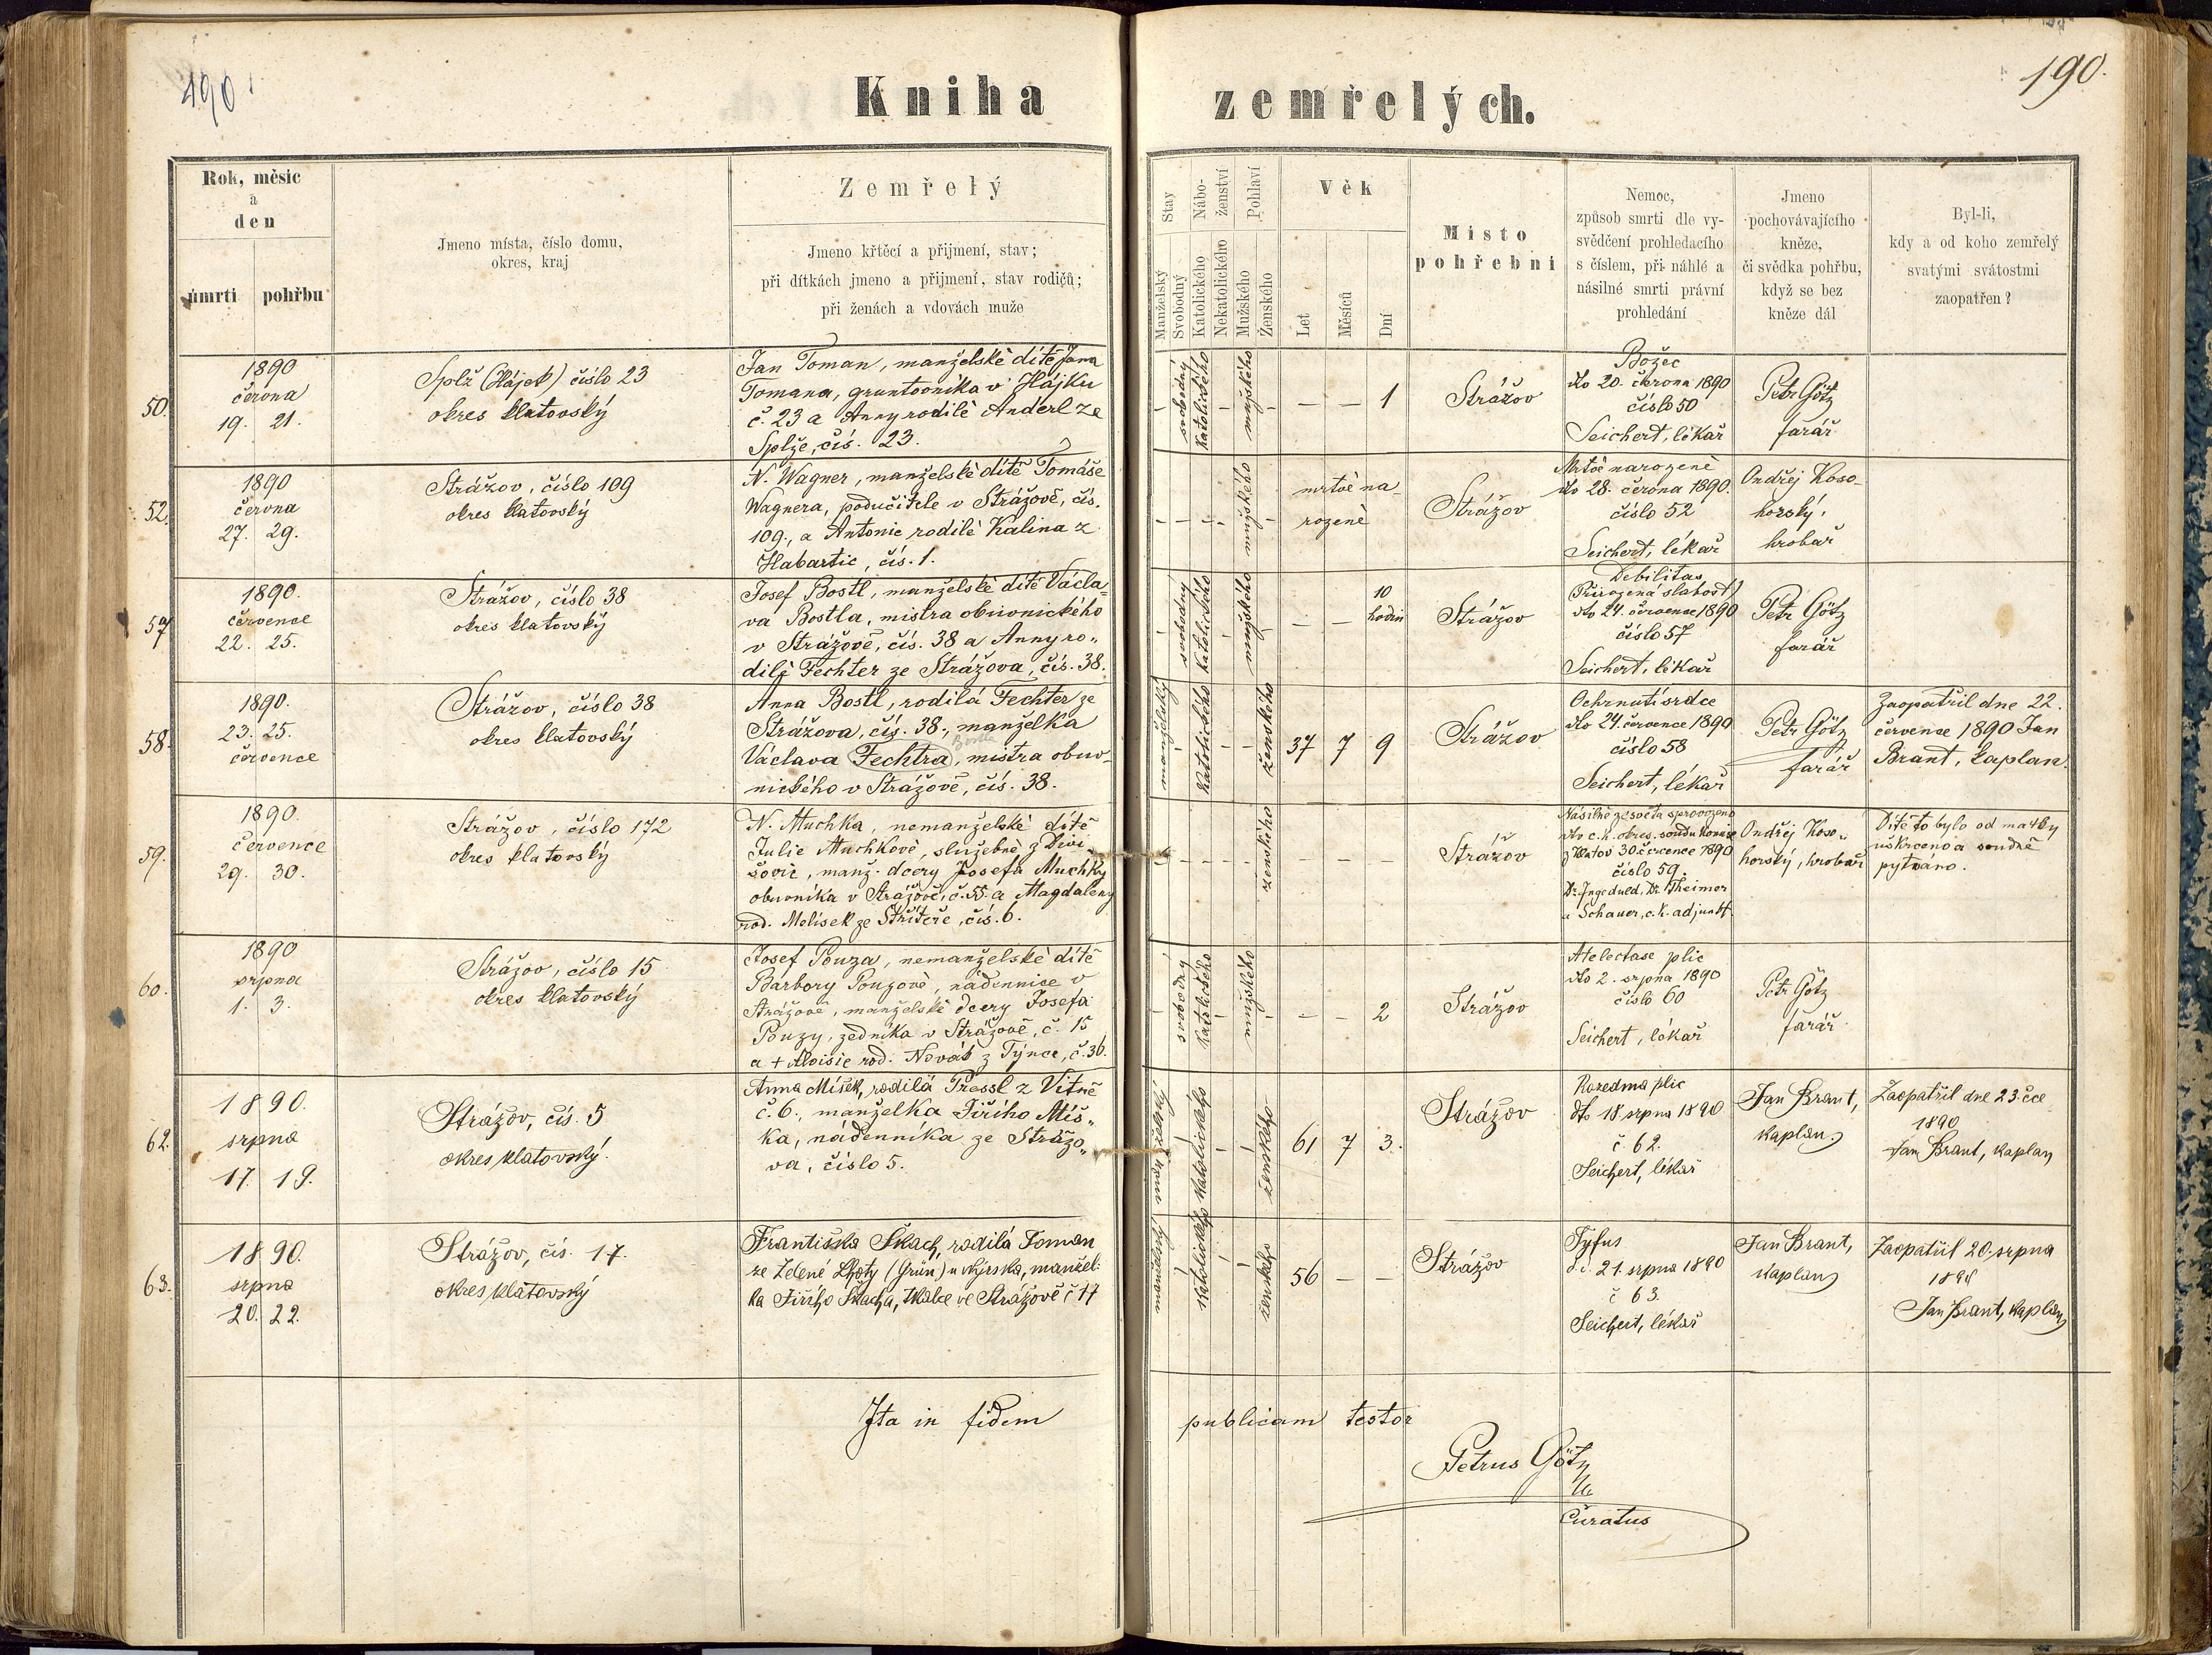 490
190.
Kniha zemřelých.
Rok, měsíc
a
den
úmrtí pohřbu
Jmeno místa, číslo domu,
okres, kraj
Zemřelý
Jmeno křtěcí a přijmení, stav;
při dítkách jmeno a přijmení, stav rodičů;
při ženách a vdovách muže
Stav
Manželský
Svobodný
Nábo-
ženství
Katolického
Nekatolického
Pohlaví
Mužského
Ženského
Věk
Let
Měsíců
Dní
Místo
pohřební
Nemoc,
způsob smrti dle vy-
svědčení prohledacího
s číslem, při náhlé a
násilné smrti právní
prohledání
Jmeno
pochovávajícího
kněze,
či svědka pohřbu,
když se bez
kněze dál
Byl-li,
kdy a od koho zemřelý
svatými svátostmi
zaopatřen?
50.
1890
června
19. 21.
Splž (Hájek) číslo 23
okres klatovský
Jan Toman, manželské dítě Jana
Tomana, gruntovníka v Hájku
č. 23 a Anny rodilé Anderl ze
Splže, čís. 23.
svobodný
katolického
mužského
— — 1
Strážov
Božec
dto 20. června 1890
číslo 50
Seichert, lékař
Petr Götz
farář
52.
1890
června
27. 29.
Strážov, číslo 109
okres klatovský
N. Wagner, manželské dítě Tomáše
Wagnera, podučitele v Strážově, čís.
109., a Antonie rodilé Kalina z
Habartic, čís. 1.
mužského
mrtvě na-
rozené
Strážov
Mrtvě narozené
dto 28. června 1890.
číslo 52
Seichert, lékař
Ondřej Koso-
horský,
hrobař
57
1890.
července
22. 25.
Strážov, číslo 38
okres klatovský
Josef Bostl, manželské dítě Václa-
va Bostla, mistra obuvnického
v Strážově, čís. 38 a Anny ro-
dilé Fechter ze Strážova, čís. 38.
svobodný
katolického
mužského
— — 10
hodin
Strážov
Debilitas
(Přirozená slabost)
dto 24. července 1890
číslo 57
Seichert, lékař
Petr Götz
farář
58.
1890.
23. 25.
července
Strážov, číslo 38
okres klatovský
Anna Bostl, rodilá Fechter ze
Strážova, čís. 38., manželka
Václava Fechtra, mistra obuv-
nického v Strážově, čís. 38.
manželský
katolického
ženského
37 7 9
Strážov
Ochrnutí srdce
dto 24. července 1890
číslo 58
Seichert, lékař
Petr Götz
farář
Zaopatřil dne 22.
července 1890 Jan
Brant, kaplan.
59.
1890.
července
29. 30.
Strážov, číslo 172
okres klatovský
N. Muchka, nemanželské dítě
Julie Muchkové, služebné z Divi-
šovic, manž. dcery Josefa Muchky
obuvníka v Strážově, č. 55. a Magdaleny
rod. Melísek ze Střítěře, čís. 6.
ženského
— — —
Strážov
Násilně ze světa sprovozeno
dto c. k. okres. soudu komise
z Klatov 30. července 1890
číslo 59.
Dr. Ingeduld, Dr. Theimer
a Schauer, c. k. adjunkt.
Ondřej Koso-
horský, hrobař
Dítě to bylo od matky
uškrceno a soudně
pytváno.
60.
1890
srpna
1. 3.
Strážov, číslo 15
okres klatovský
Josef Pouza, nemanželské dítě
Barbory Pouzové, nádennice v
Strážově, manželské dcery Josefa
Pouzy, zedníka v Strážově, č. 15
a + Aloisie rod. Novák z Týnce, č. 36.
svobodný
katolického
mužského
— — 2
Strážov
Atelectase plic
dto 2. srpna 1890
číslo 60
Seichert, lékař
Petr Götz
farář
62.
1890.
srpna
17. 19.
Strážov, čís. 5
okres klatovský.
Anna Míšek, rodilá Pressl z Vitně
č. 6., manželka Jiřího Míš-
ka, nádenníka ze Strážo-
va, číslo 5.
manželský
katolického
ženského
61 7 3.
Strážov
Rozedma plic
dto 18 srpna 1890
č 62.
Seichert, lékař
Jan Brant,
kaplan
Zaopatřil dne 23. čce
1890
Jan Brant, kaplan
63.
1890.
srpna
20. 22.
Strážov, čís. 17.
okres klatovský
Františka Škach, rodilá Toman
ze Zelené Lhoty (Grün) u Nýrska, manžel-
ka Jiřího Škacha, tkalce ve Strážově č 17
manželský
katolického
ženského
56 — —
Strážov
Tyfus
21. srpna 1890
č 63.
Seichert, lékař
Jan Brant,
kaplan
Zaopatřil 20. srpna
1890
Jan Brant, kaplan
Ita in fidem publicam testor
Petrus Götz
Curatus